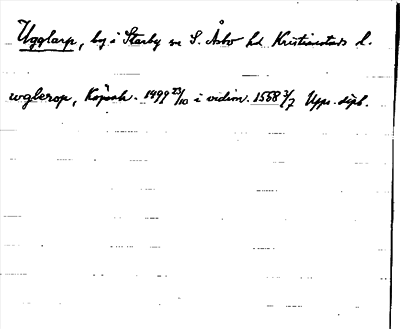 Ugglarp, by i Starby sn S. Åsbo hd Kristianstads l.
wglerop, Köpenh. 1499 23/10 i vidim. 1568 3/7 Upp. dipl.